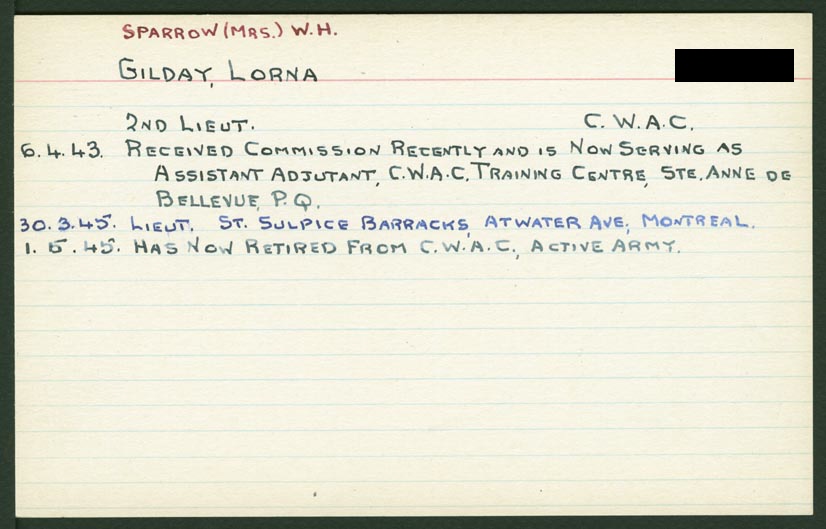 SPARROW (MRS.) W.H.
GILDAY, LORNA
2ND LIEUT. C.W.A.C.
6.4.43. RECEIVED COMMISSION RECENTLY AND IS NOW SERVING AS
ASSISTANT ADJUTANT, C.W.A.C. TRAINING CENTRE, STE. ANNE DE
BELLEVUE, P.Q.
30.3.45. LIEUT. ST. SULPICE BARRACKS, ATWATER AVE., MONTREAL.
1.5.45. HAS NOW RETIRED FROM C.W.A.C., ACTIVE ARMY.